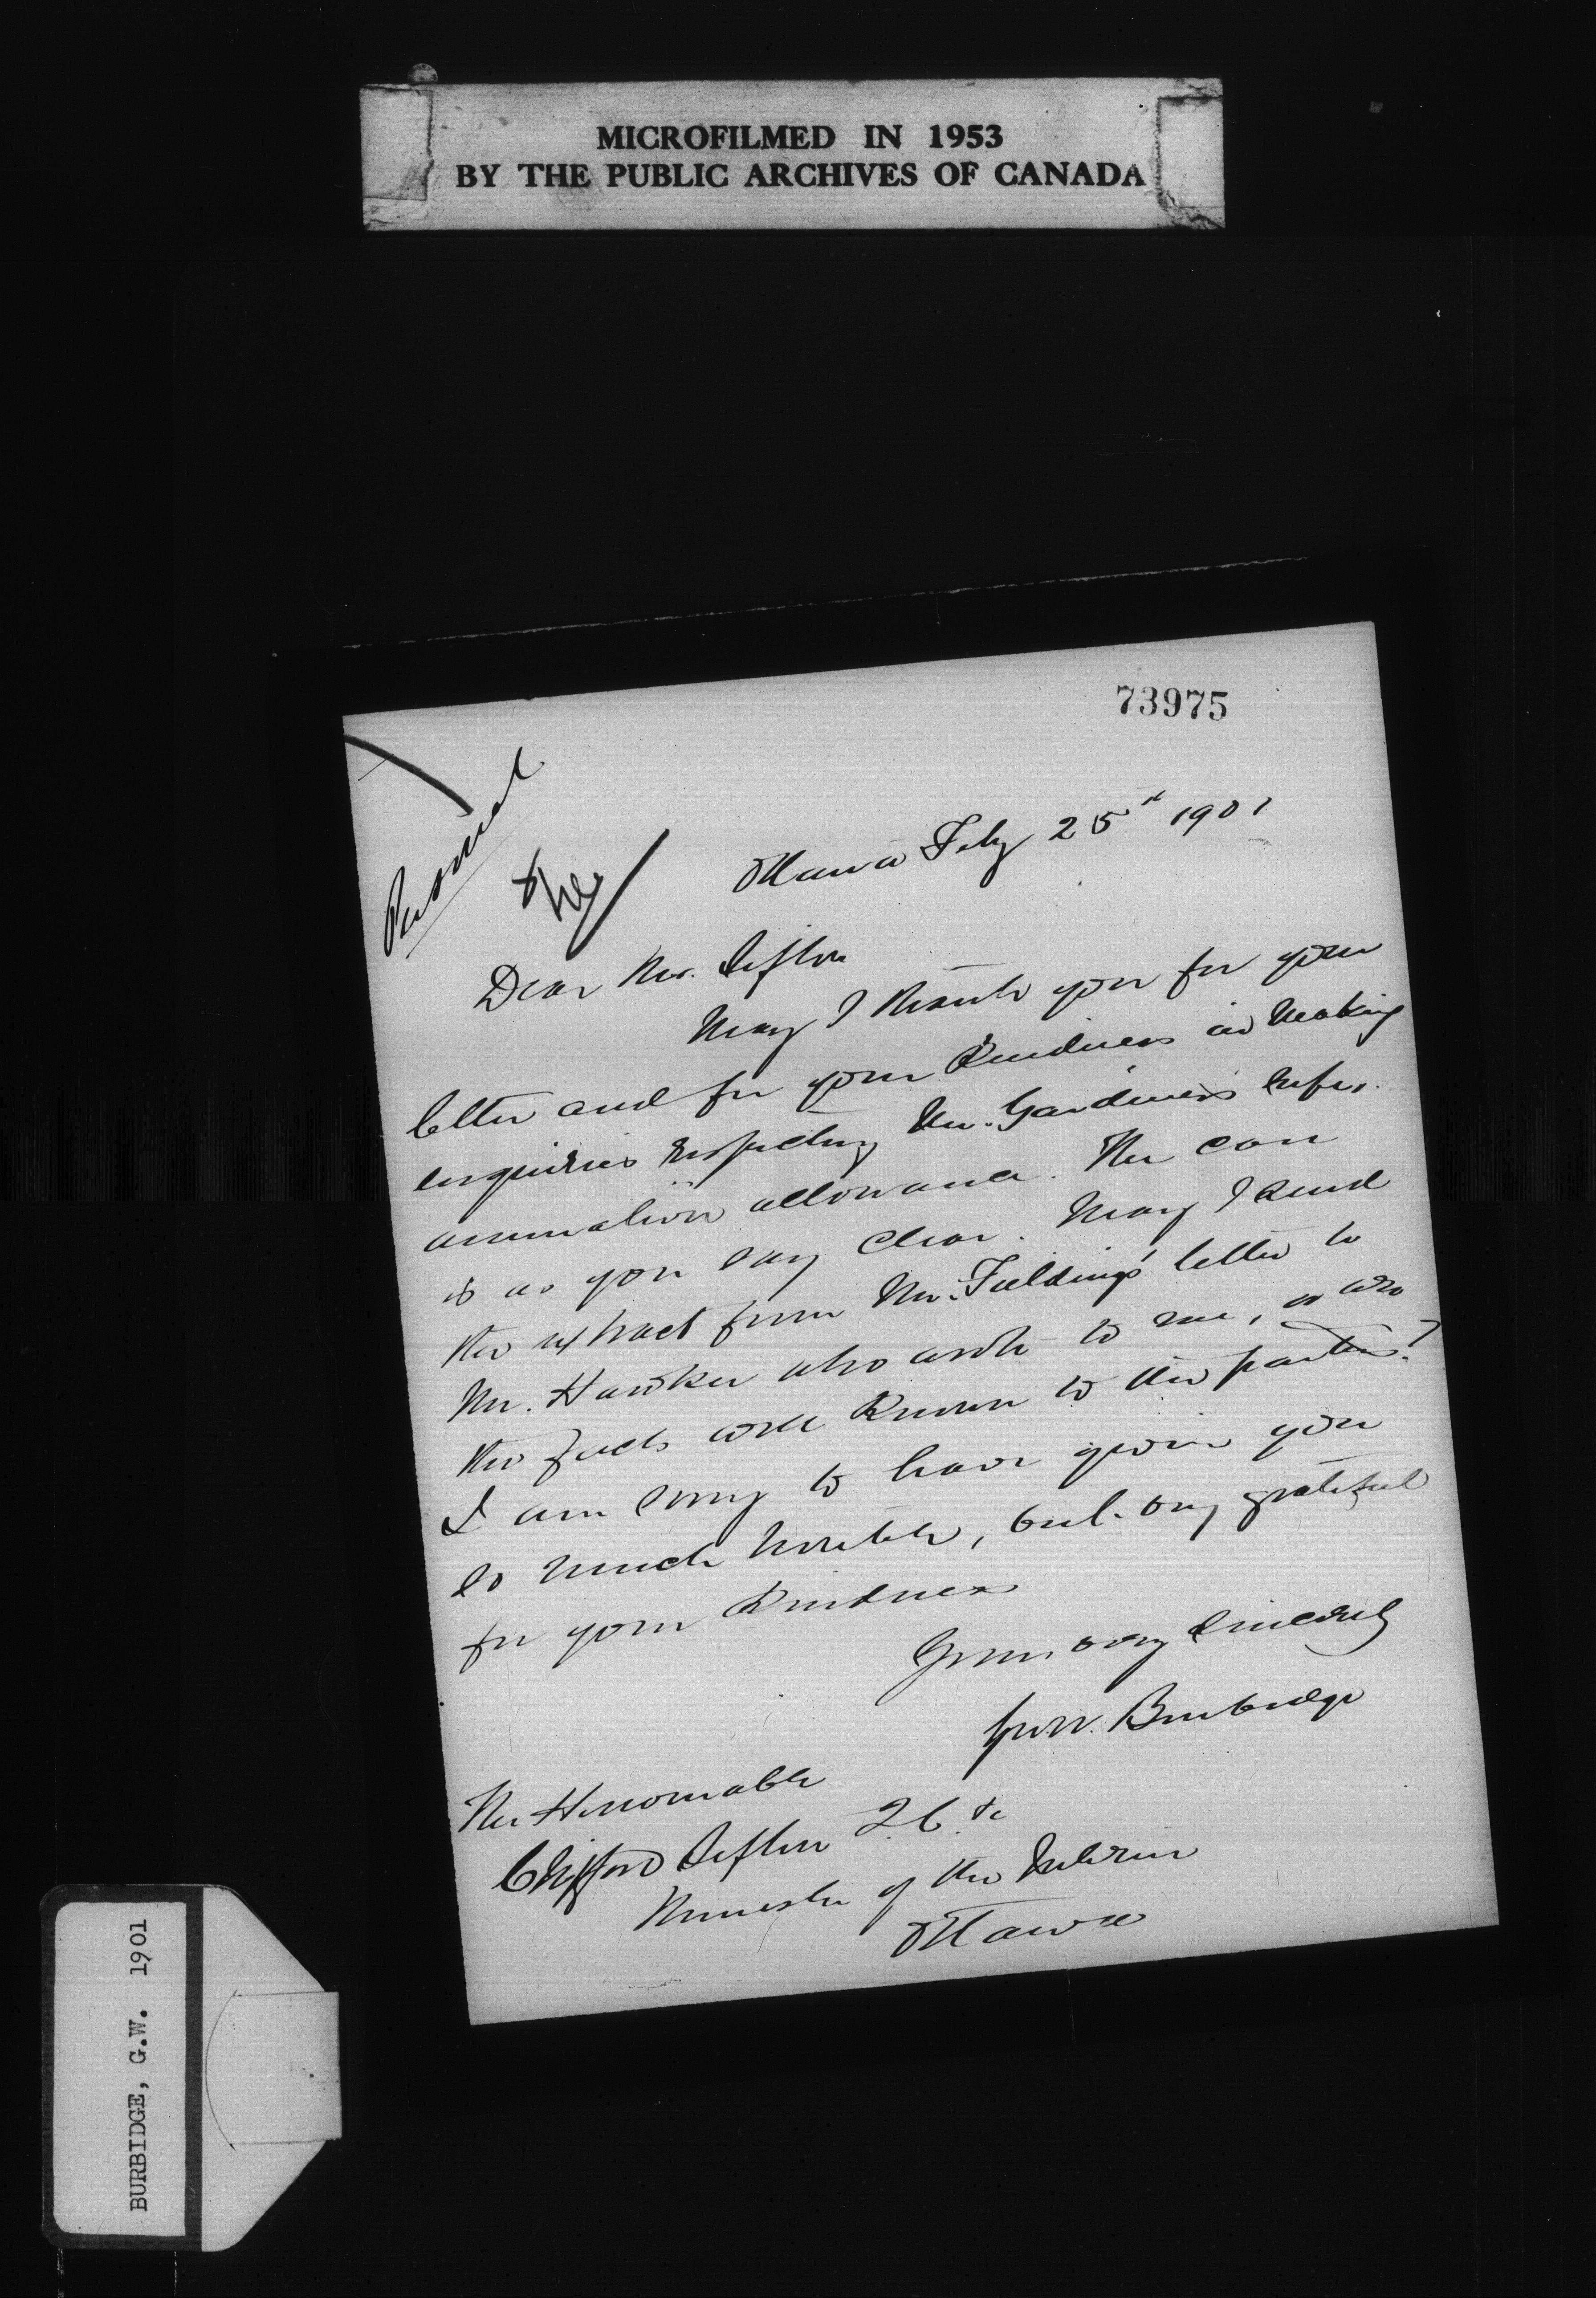 MICROFILMED IN 1953
BY THE PUBLIC ARCHIVES OF CANADA
73975
Personal
Ottawa Feby 25th 1901
Dear Mr. Sifton
May I thank you for your
letter and for your kindness in making
enquiries respecting Mr. Gardiner's super-
annuation allowance. The case
is as you say clear. May I send
the extract from Mr. Fielding's letter to
Mr. Hawker who wrote to me, or are
the facts well known to the parties?
I am sorry to have given you
so much trouble, but very grateful
for your kindness
Yours very sincerely
Geo. W. Burbidge
The Honourable
Clifford Sifton Q.C. &c
Minister of the Interior
Ottawa
BURBIDGE, G.W. 1901